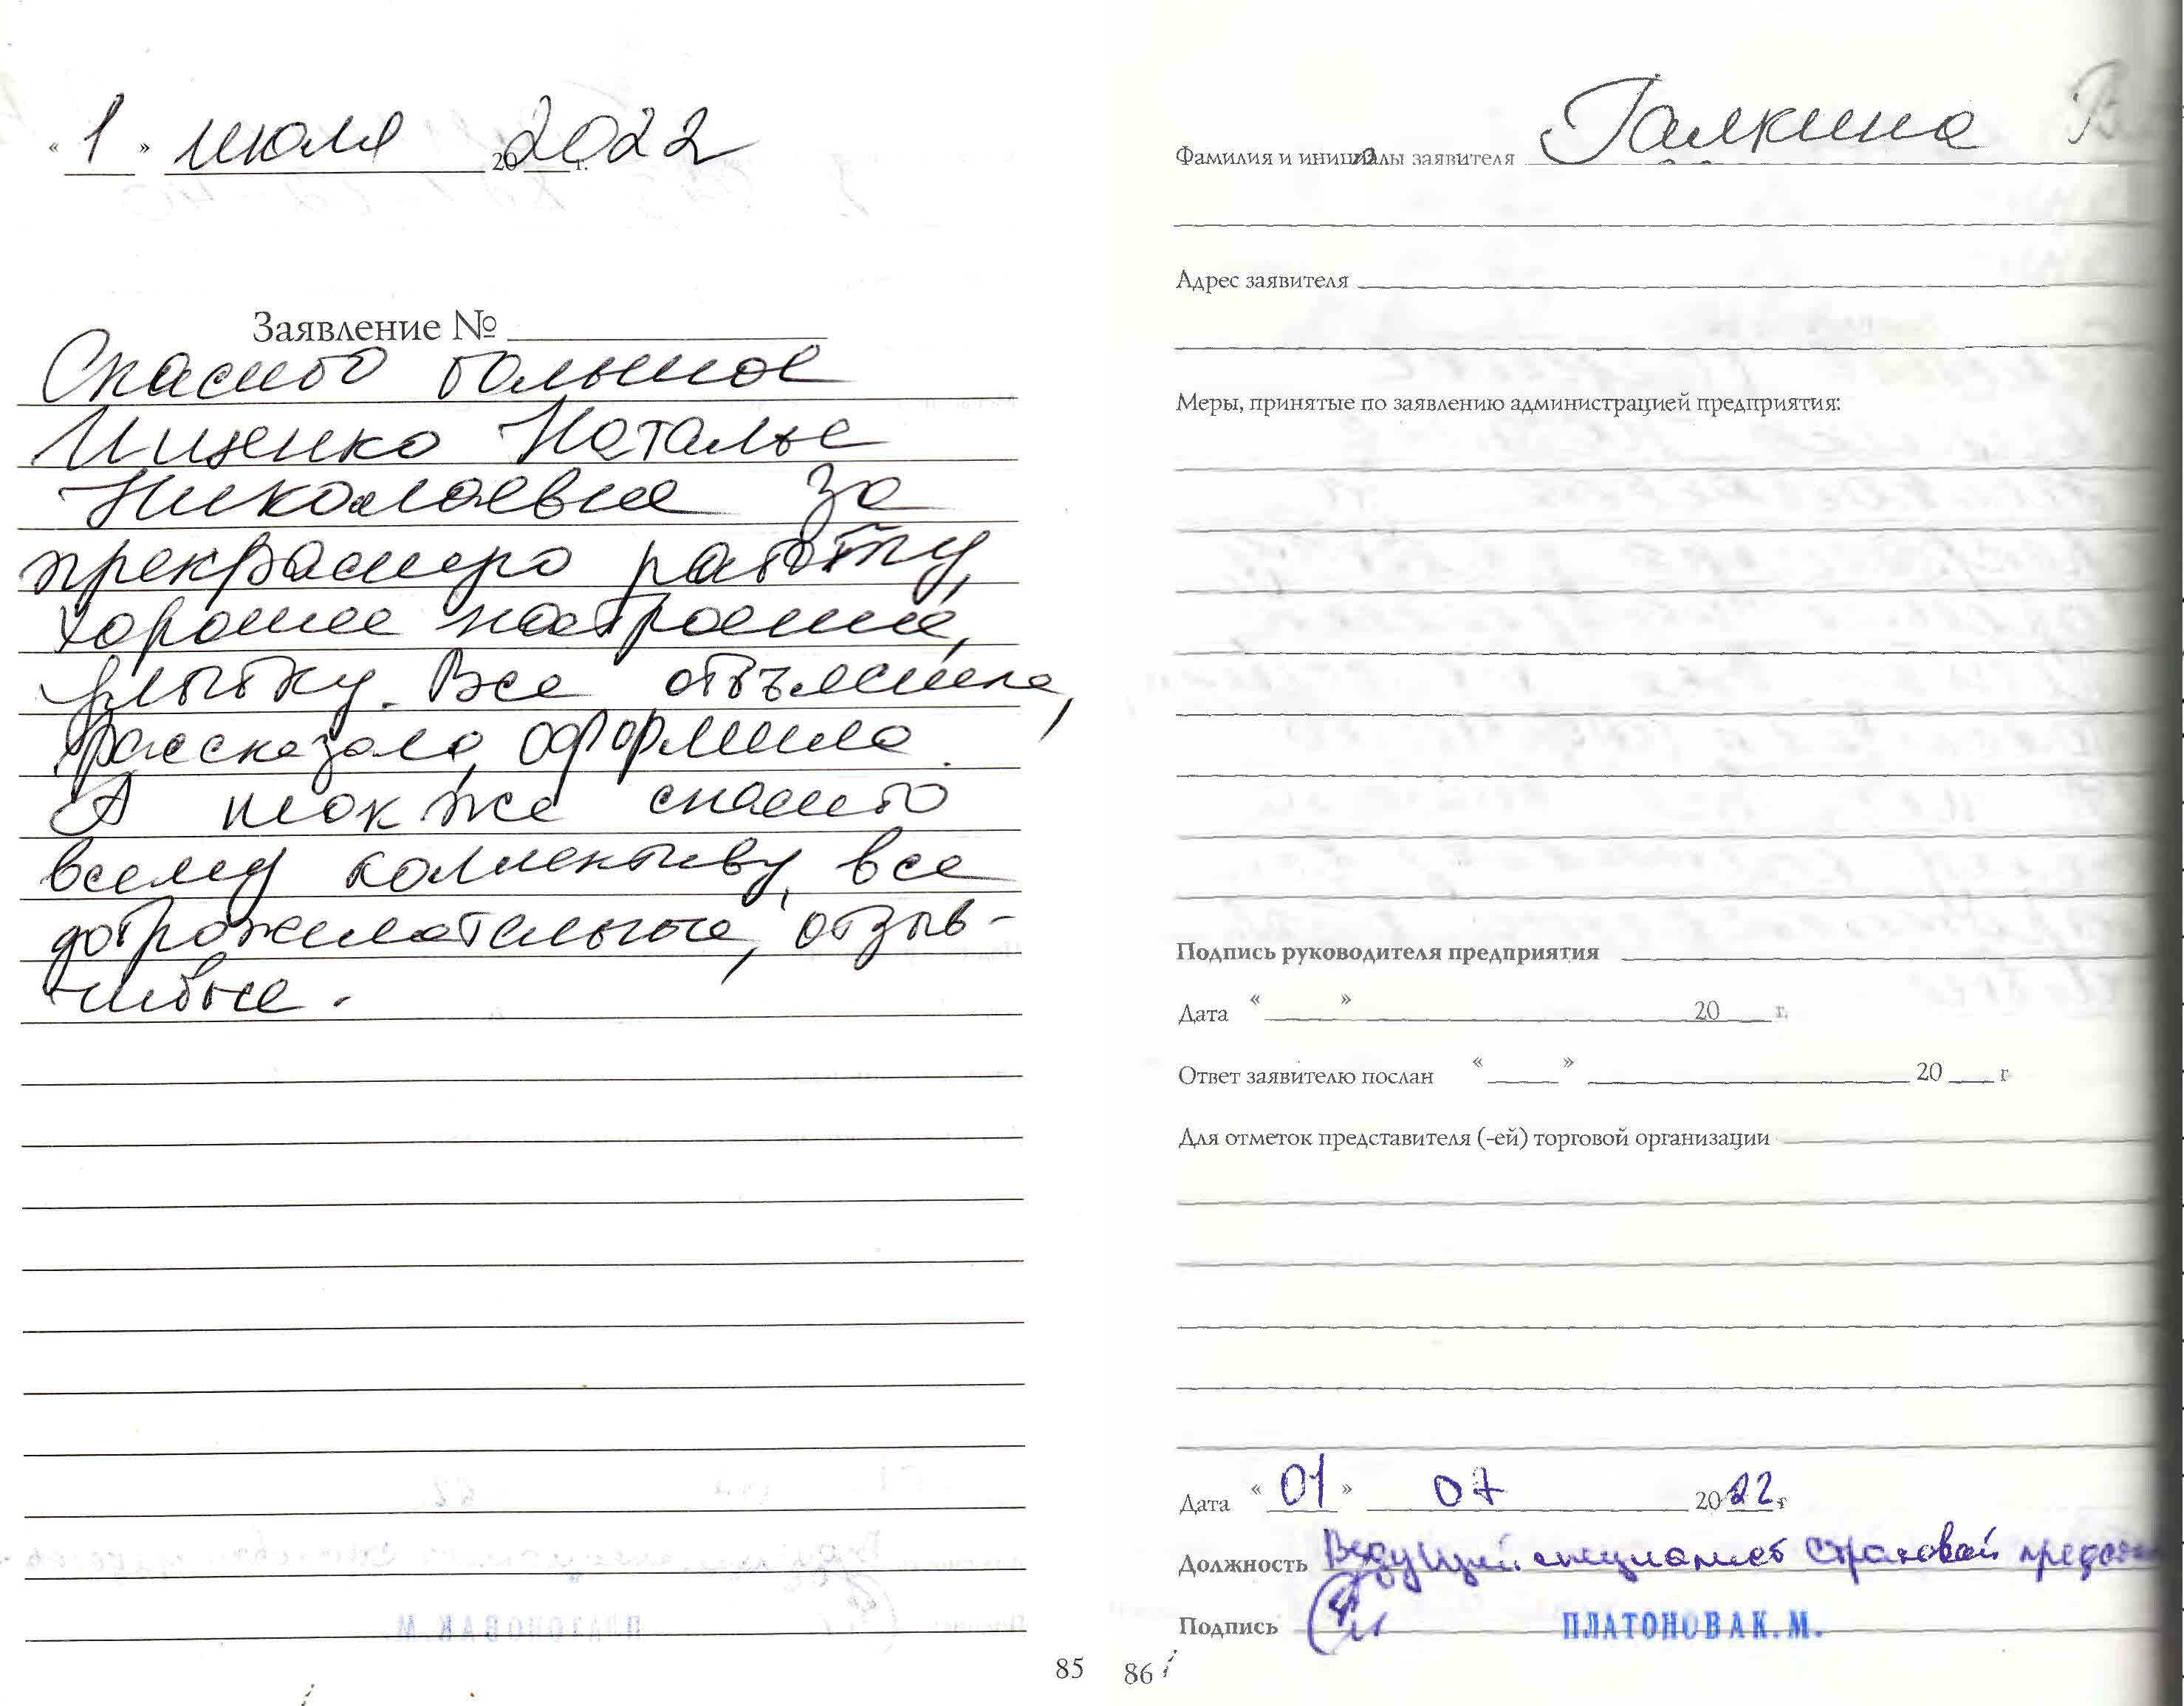 « 1 » июля 20 2022 г.
Заявление №
Спасибо большое
Ищенко Наталье
Николаевне за
прекрасную работу,
хорошее настроение,
улыбку. Все объяснила,
рассказала, оформила.
А так же спасибо
всему коллективу, все
доброжелательные, отзыв-
чивые.
85
Фамилия и инициалы заявителя Галкина В
Адрес заявителя
Меры, принятые по заявлению администрацией предприятия:
Подпись руководителя предприятия
Дата « » 20 г.
Ответ заявителю послан « » 20 г
Для отметок представителя (-ей) торговой организации
Дата « 01 » 07 2022 г
Должность Ведущий специалист страховой
Подпись ПЛАТОНОВА К.М.
86